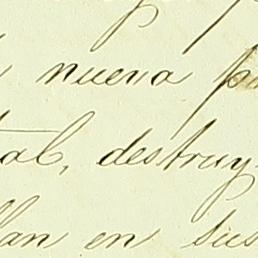 nueva p
tal, destruy
llan en sus